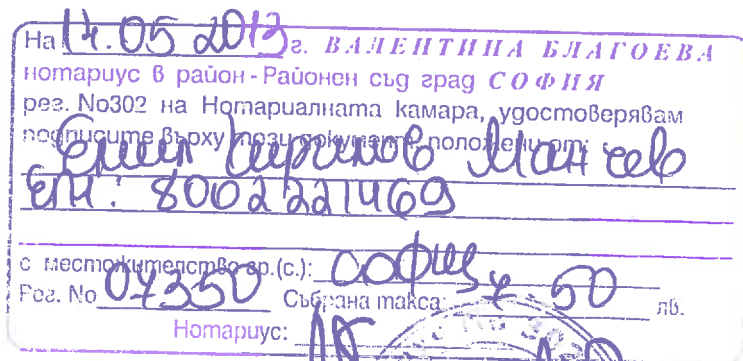 На 14.05 2013 г. ВАЛЕНТИНА БЛАГОЕВА
нотариус в район - Районен съд град СОФИЯ
рег. No302 на Нотариалната камара, удостоверявам
подписите върху този документ, положени от:
Емил Кирилов Манчев
ЕГН: 8002221469
с местожителство гр.(с.): София
Рег. No 07350 Събрана такса: 7 50 лв.
Нотариус: